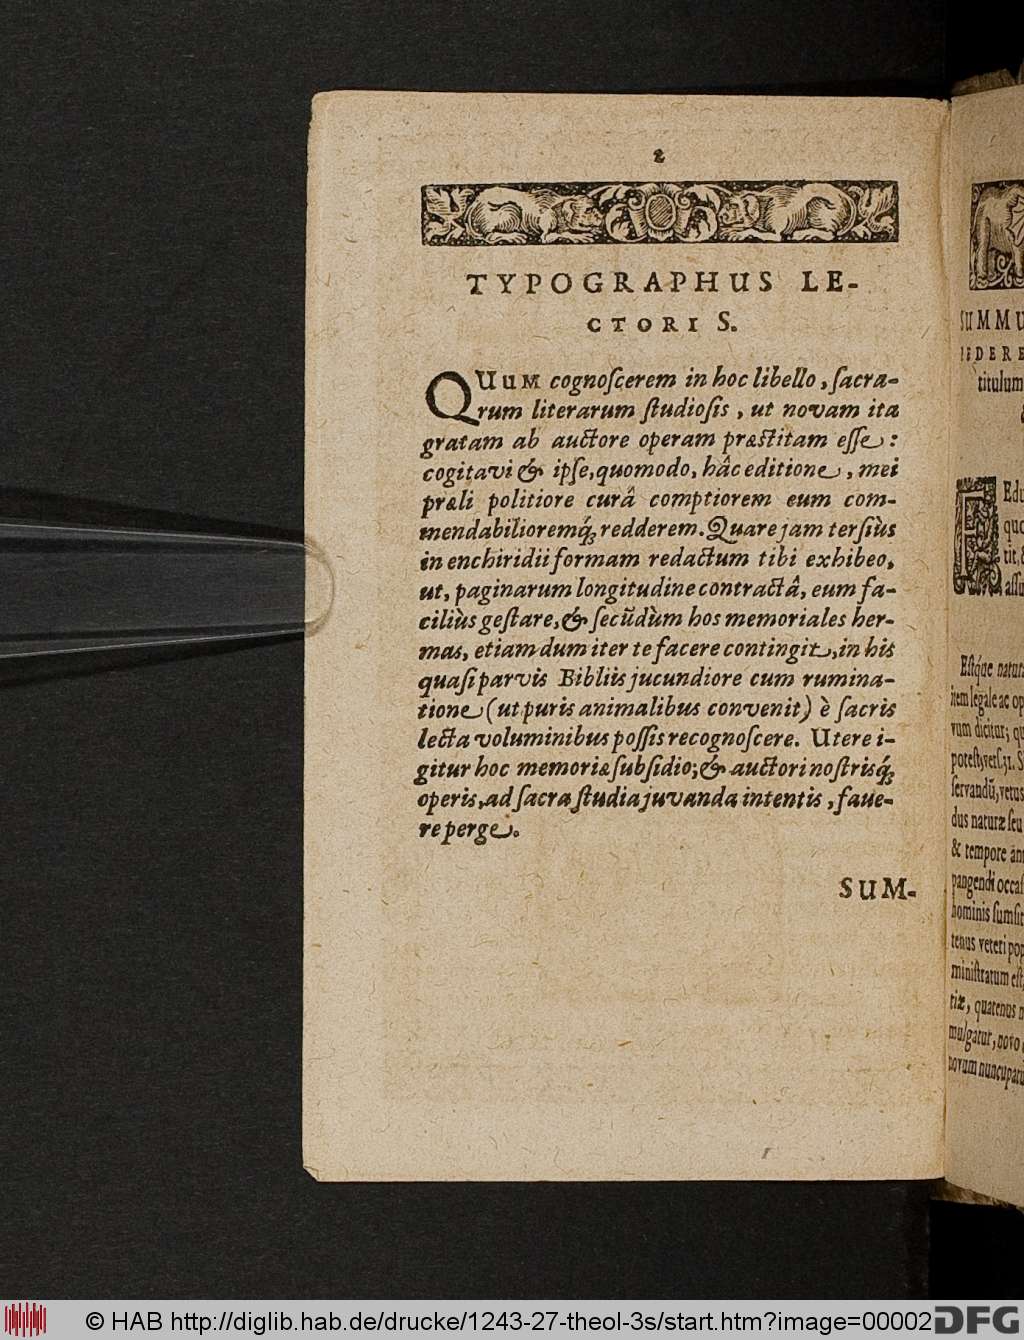 2
TYPOGRAPHUS LE-
CTORI S.
QUUM cognoſcerem in hoc libello, ſacra-
rum literarum ſtudioſis, ut novam ita
gratam ab auctore operam præſtitam eſſe:
cogitavi & ipſe, quomodo, hâc editione, mei
præli politiore curâ comptiorem eum com-
mendabilioremq́; redderem. Quare jam terſiùs
in enchiridii formam redactum tibi exhibeo,
ut, paginarum longitudine contractâ, eum fa-
ciliùs geſtare, & ſecũdùm hos memoriales her-
mas, etiam dum iter te facere contingit, in his
quaſi parvis Bibliis jucundiore cum rumina-
tione (ut puris animalibus convenit) è ſacris
lecta voluminibus poſſis recognoſcere. Utere i-
gitur hoc memoriæ ſubſidio; & auctori noſtrisq́;
operis, ad ſacra ſtudia juvanda intentis, fave-
re perge.
SUM-
SUMMU
FEDERE
titulum
Edu
quo
tit, &
aſſu
Eſtque natur
item legale ac op
vum dicitur; qu
poteſt, verſ. 31. S
ſervandũ, vetus
dus naturæ ſeu
& tempore ãn
pangendi occaſ
hominis ſumſit
tenus veteri pop
miniſtratum eſt,
tiæ, quatenus n
mulgatur, novo
novum nuncupatu
© HAB http://diglib.hab.de/drucke/1243-27-theol-3s/start.htm?image=00002
DFG